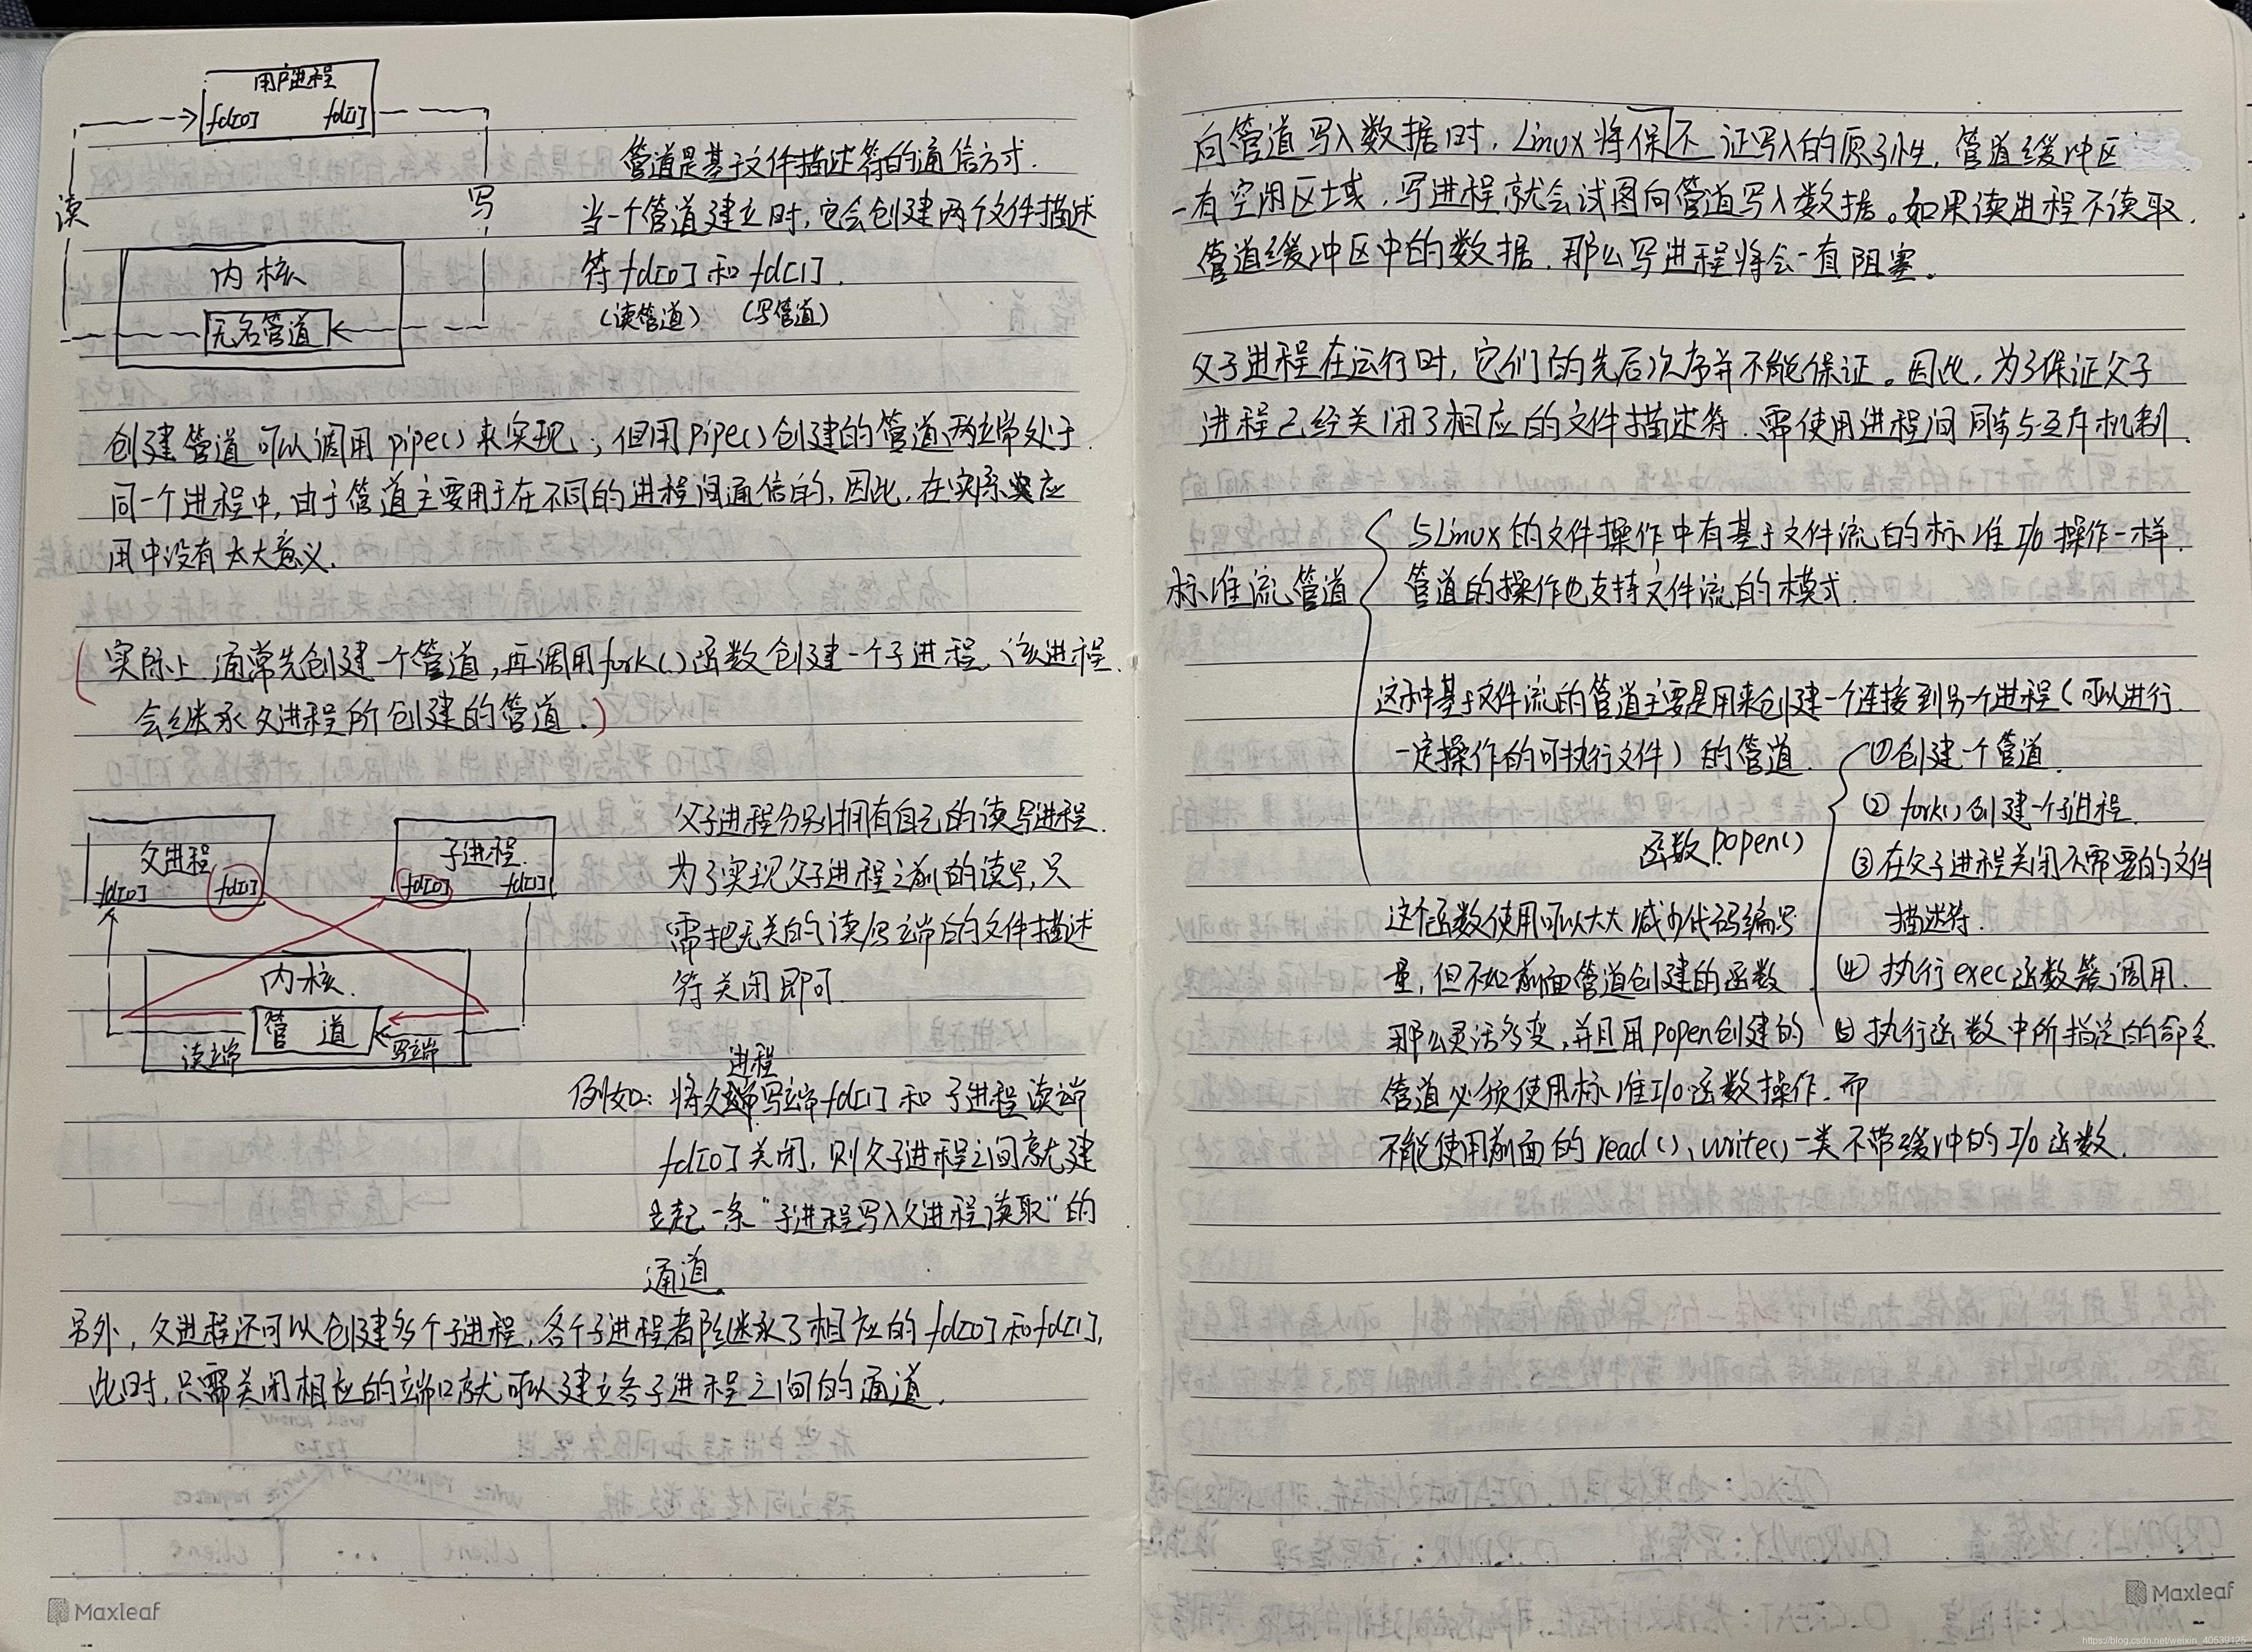 用户进程
fd[0] fd[1]
读
写
内核
无名管道
管道是基于文件描述符的通信方式.
当一个管道建立时,它会创建两个文件描述
符 fd[0] 和 fd[1].
(读管道) (写管道)
创建管道可以调用 pipe() 来实现,但用pipe()创建的管道两端处于
同一个进程中,由于管道主要用于在不同的进程间通信的,因此,在实际应
用中没有太大意义.
(实际上 通常先创建一个管道,再调用fork()函数创建一个子进程,该进程
会继承父进程所创建的管道.)
父进程
fd[0] fd[1]
子进程.
fd[0] fd[1]
内核.
管 道
读端 写端
父子进程分别拥有自己的读写进程.
为了实现父子进程之前的读写,只
需把无关的读/写端的文件描述
符关闭即可.
进程
例如:将父写端fd[1] 和 子进程读端
fd[0]关闭,则父子进程之间就建
立起一条"子进程写入父进程读取"的
通道.
另外,父进程还可以创建多个子进程,各个子进程都继承了相应的 fd[0]和fd[1],
此时,只需关闭相应的端口就可以建立各子进程之间的通道.
Maxleaf
向管道写入数据时,Linux将保不证写入的原子性,管道缓冲区
一有空闲区域,写进程就会试图向管道写入数据。如果读进程不读取
管道缓冲区中的数据,那么写进程将会一直阻塞。
父子进程在运行时,它们的先后次序并不能保证。因此,为了保证父子
进程已经关闭了相应的文件描述符,需使用进程间同步与互斥机制.
标准流管道
与Linux的文件操作中有基于文件流的标准I/O操作一样.
管道的操作也支持文件流的模式.
这种基于文件流的管道主要是用来创建一个连接到另一个进程(可以进行
一定操作的可执行文件)的管道.
函数 popen()
①创建一个管道.
② fork()创建一个子进程.
③在父子进程关闭不需要的文件
描述符.
④ 执行exec函数簇调用.
⑤ 执行函数中所指定的命令
这个函数使用可以大大减少代码编写
量,但不如前面管道创建的函数
那么灵活多变,并且用popen创建的
管道必须使用标准I/O函数操作.而
不能使用前面的 read()、write()一类不带缓冲的 I/O 函数.
Maxleaf
https://blog.csdn.net/weixin_40539125